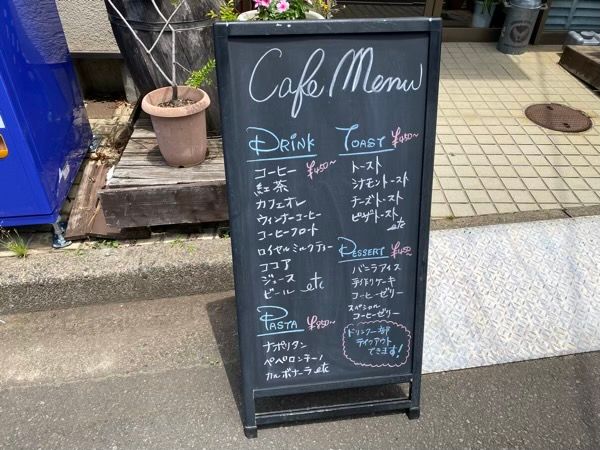 Cafe Menu
DRINK ¥450~
コーヒー
紅茶
カフェオレ
ウィンナーコーヒー
コーヒーフロート
ロイヤルミルクティー
ココア
ジュース
ビール etc
PASTA ¥850~
ナポリタン
ペペロンチーノ
カルボナーラ etc
TOAST ¥450~
トースト
シナモントースト
チーズトースト
ピザトースト
etc
DESSERT ¥450~
バニラアイス
手作りケーキ
コーヒーゼリー
スペシャル
コーヒーゼリー
ドリンク一部
テイクアウト
できます!